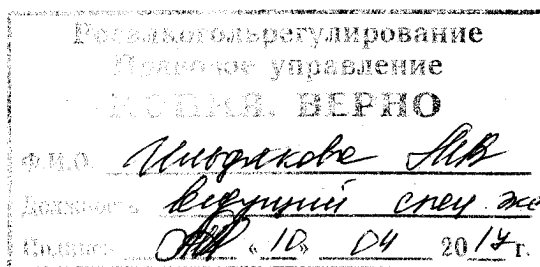 Росалкогольрегулирование
Правовое управление
КОПИЯ. ВЕРНО
Ф.И.О.
Должность ведущий спец. экс
Подпись « 10 » 04 2014 г.